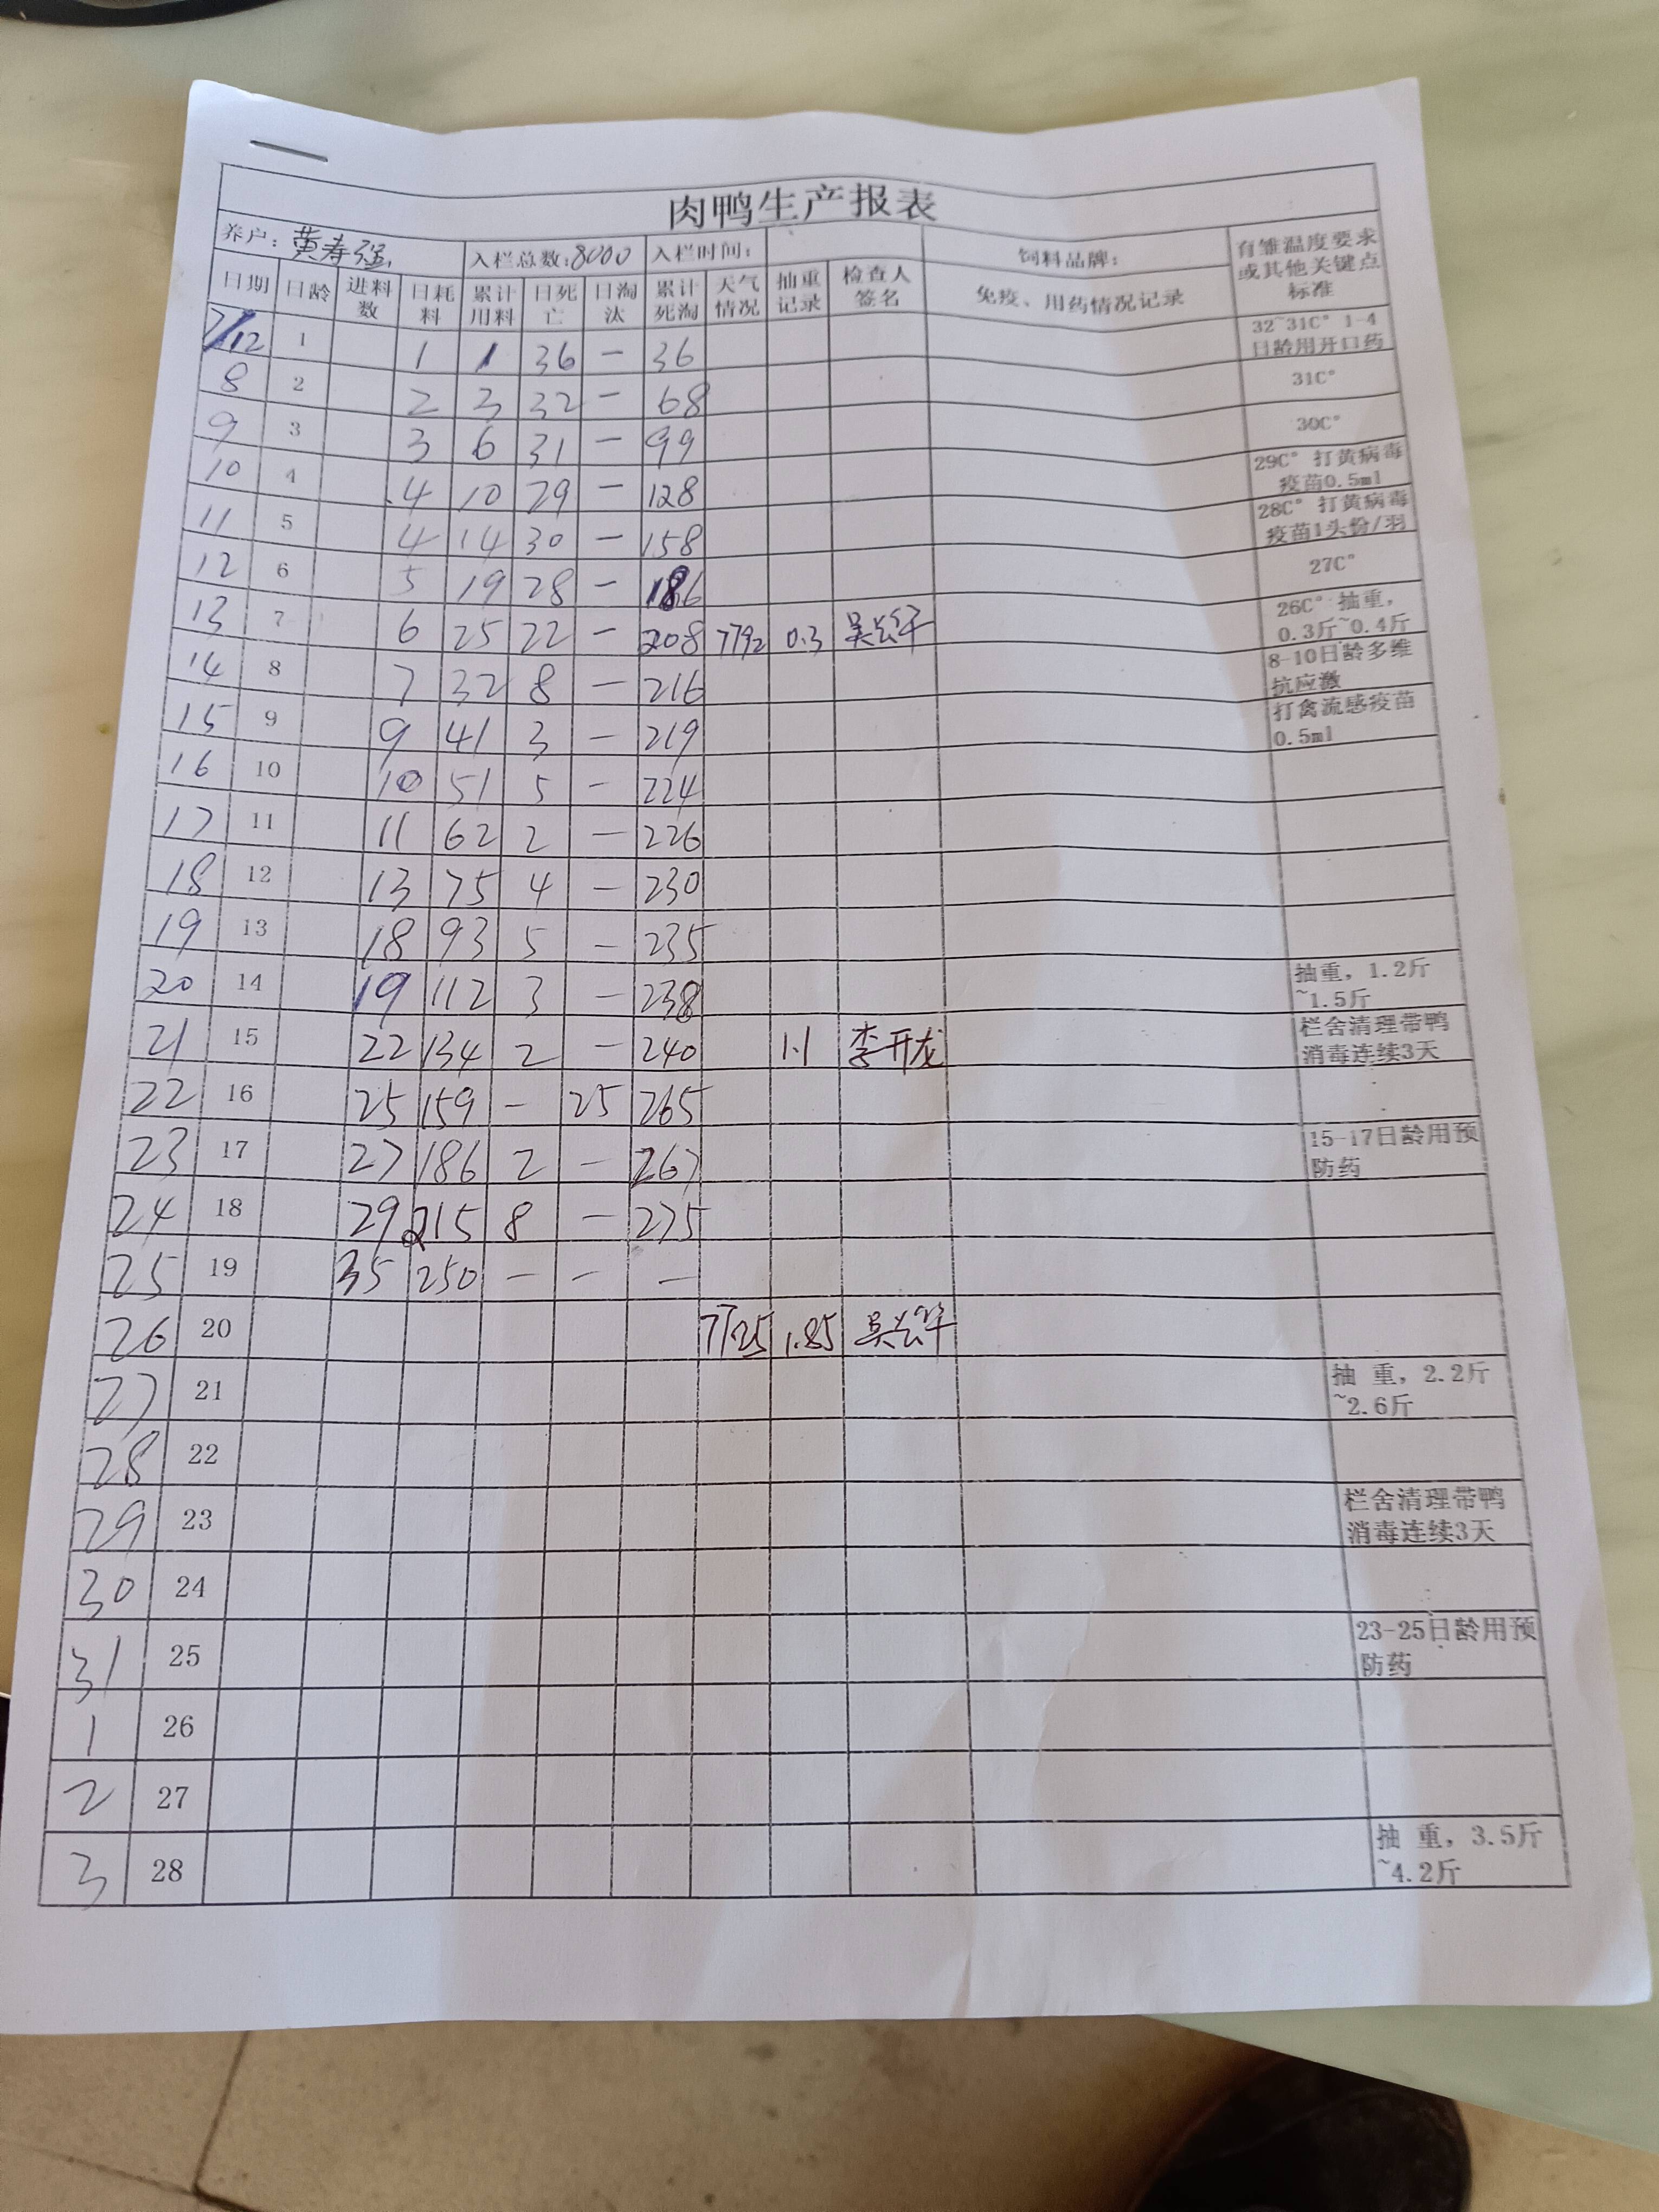 肉鸭生产报表
养户：黄寿强 入栏总数：8000 入栏时间： 饲料品牌： 育雏温度要求或其他关键点标准
日期 日龄 进料数 日耗料 累计用料 日死亡 日淘汰 累计死淘 天气情况 抽重记录 检查人签名 免疫、用药情况记录
7/12 1 1 1 36 — 36 32~31C° 1-4日龄用开口药
8 2 2 3 32 — 68 31C°
9 3 3 6 31 — 99 30C°
10 4 4 10 29 — 128 29C° 打黄病毒疫苗0.5ml
11 5 4 14 30 — 158 28C° 打黄病毒疫苗1头份/羽
12 6 5 19 28 — 186 27C°
13 7 6 25 22 — 208 7792 0.3 26C° 抽重，0.3斤~0.4斤
14 8 7 32 8 — 216 8-10日龄多维抗应激
15 9 9 41 3 — 219 打禽流感疫苗0.5ml
16 10 10 51 5 — 224
17 11 11 62 2 — 226
18 12 13 75 4 — 230
19 13 18 93 5 — 235
20 14 19 112 3 — 238 抽重，1.2斤~1.5斤
21 15 22 134 2 — 240 1.1 李开龙 栏舍清理带鸭消毒连续3天
22 16 25 159 — 25 265
23 17 27 186 2 — 267 15-17日龄用预防药
24 18 29 215 8 — 275
25 19 35 250 — — —
26 20 7725 1.85
27 21 抽 重，2.2斤~2.6斤
28 22
29 23 栏舍清理带鸭消毒连续3天
30 24
31 25 23-25日龄用预防药
1 26
2 27
3 28 抽 重，3.5斤~4.2斤